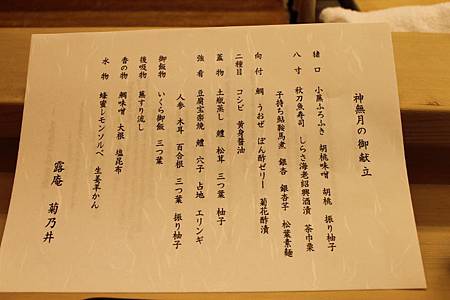 神無月の御献立
猪口 小蕪ふろふき 胡桃味噌 胡桃 振り柚子
八寸 秋刀魚寿司 しらさ海老紹興酒漬 茶巾栗
子持ち鮎鞍馬煮 銀杏 銀杏芋 松葉素麺
向付 鯛 うおぜ ぽん酢ゼリー 菊花酢漬
二種目 コシビ 黄身醤油
蓋物 土瓶蒸し 鱧 松茸 三つ葉 柚子
強肴 豆腐宝楽焼 鱧 穴子 占地 エリンギ
人参 木耳 百合根 三つ葉 振り柚子
御飯物 いくら御飯 三つ葉
後吸物 蕪すり流し
香の物 鯛味噌 大根 塩昆布
水物 蜂蜜レモンソルベ 生姜羊かん
露庵 菊乃井